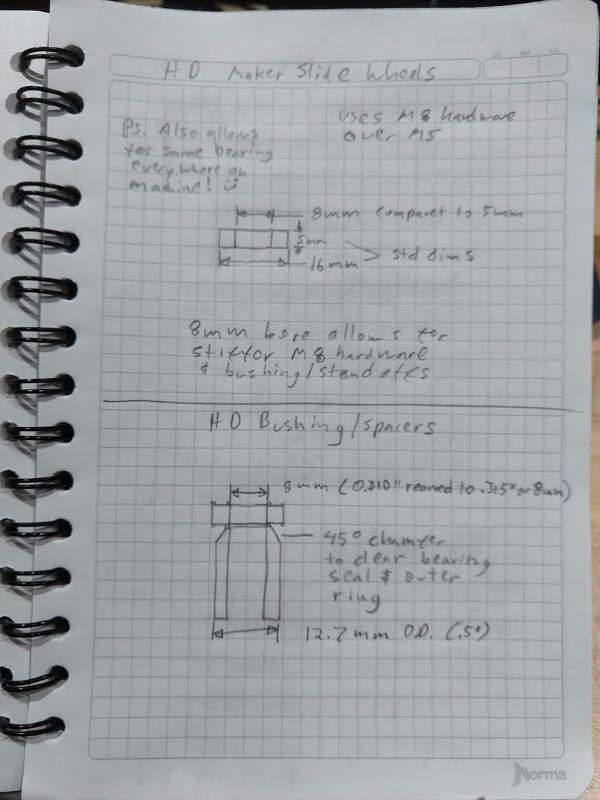 HD Maker Slide Wheels
uses M8 hardware
over M5
Ps. Also allows
for same bearing
everywhere on
machine!
8mm comparet to 5mm
5mm
16mm
std dims
8mm bore allows for
stiffer M8 hardware
& bushing/standoffs
HD Bushing/spacers
8mm (0.310" reamed to .315" or 8mm)
45° chamfer
to clear bearing
seal & outer
ring
12.7mm O.D. (.5")
Norma